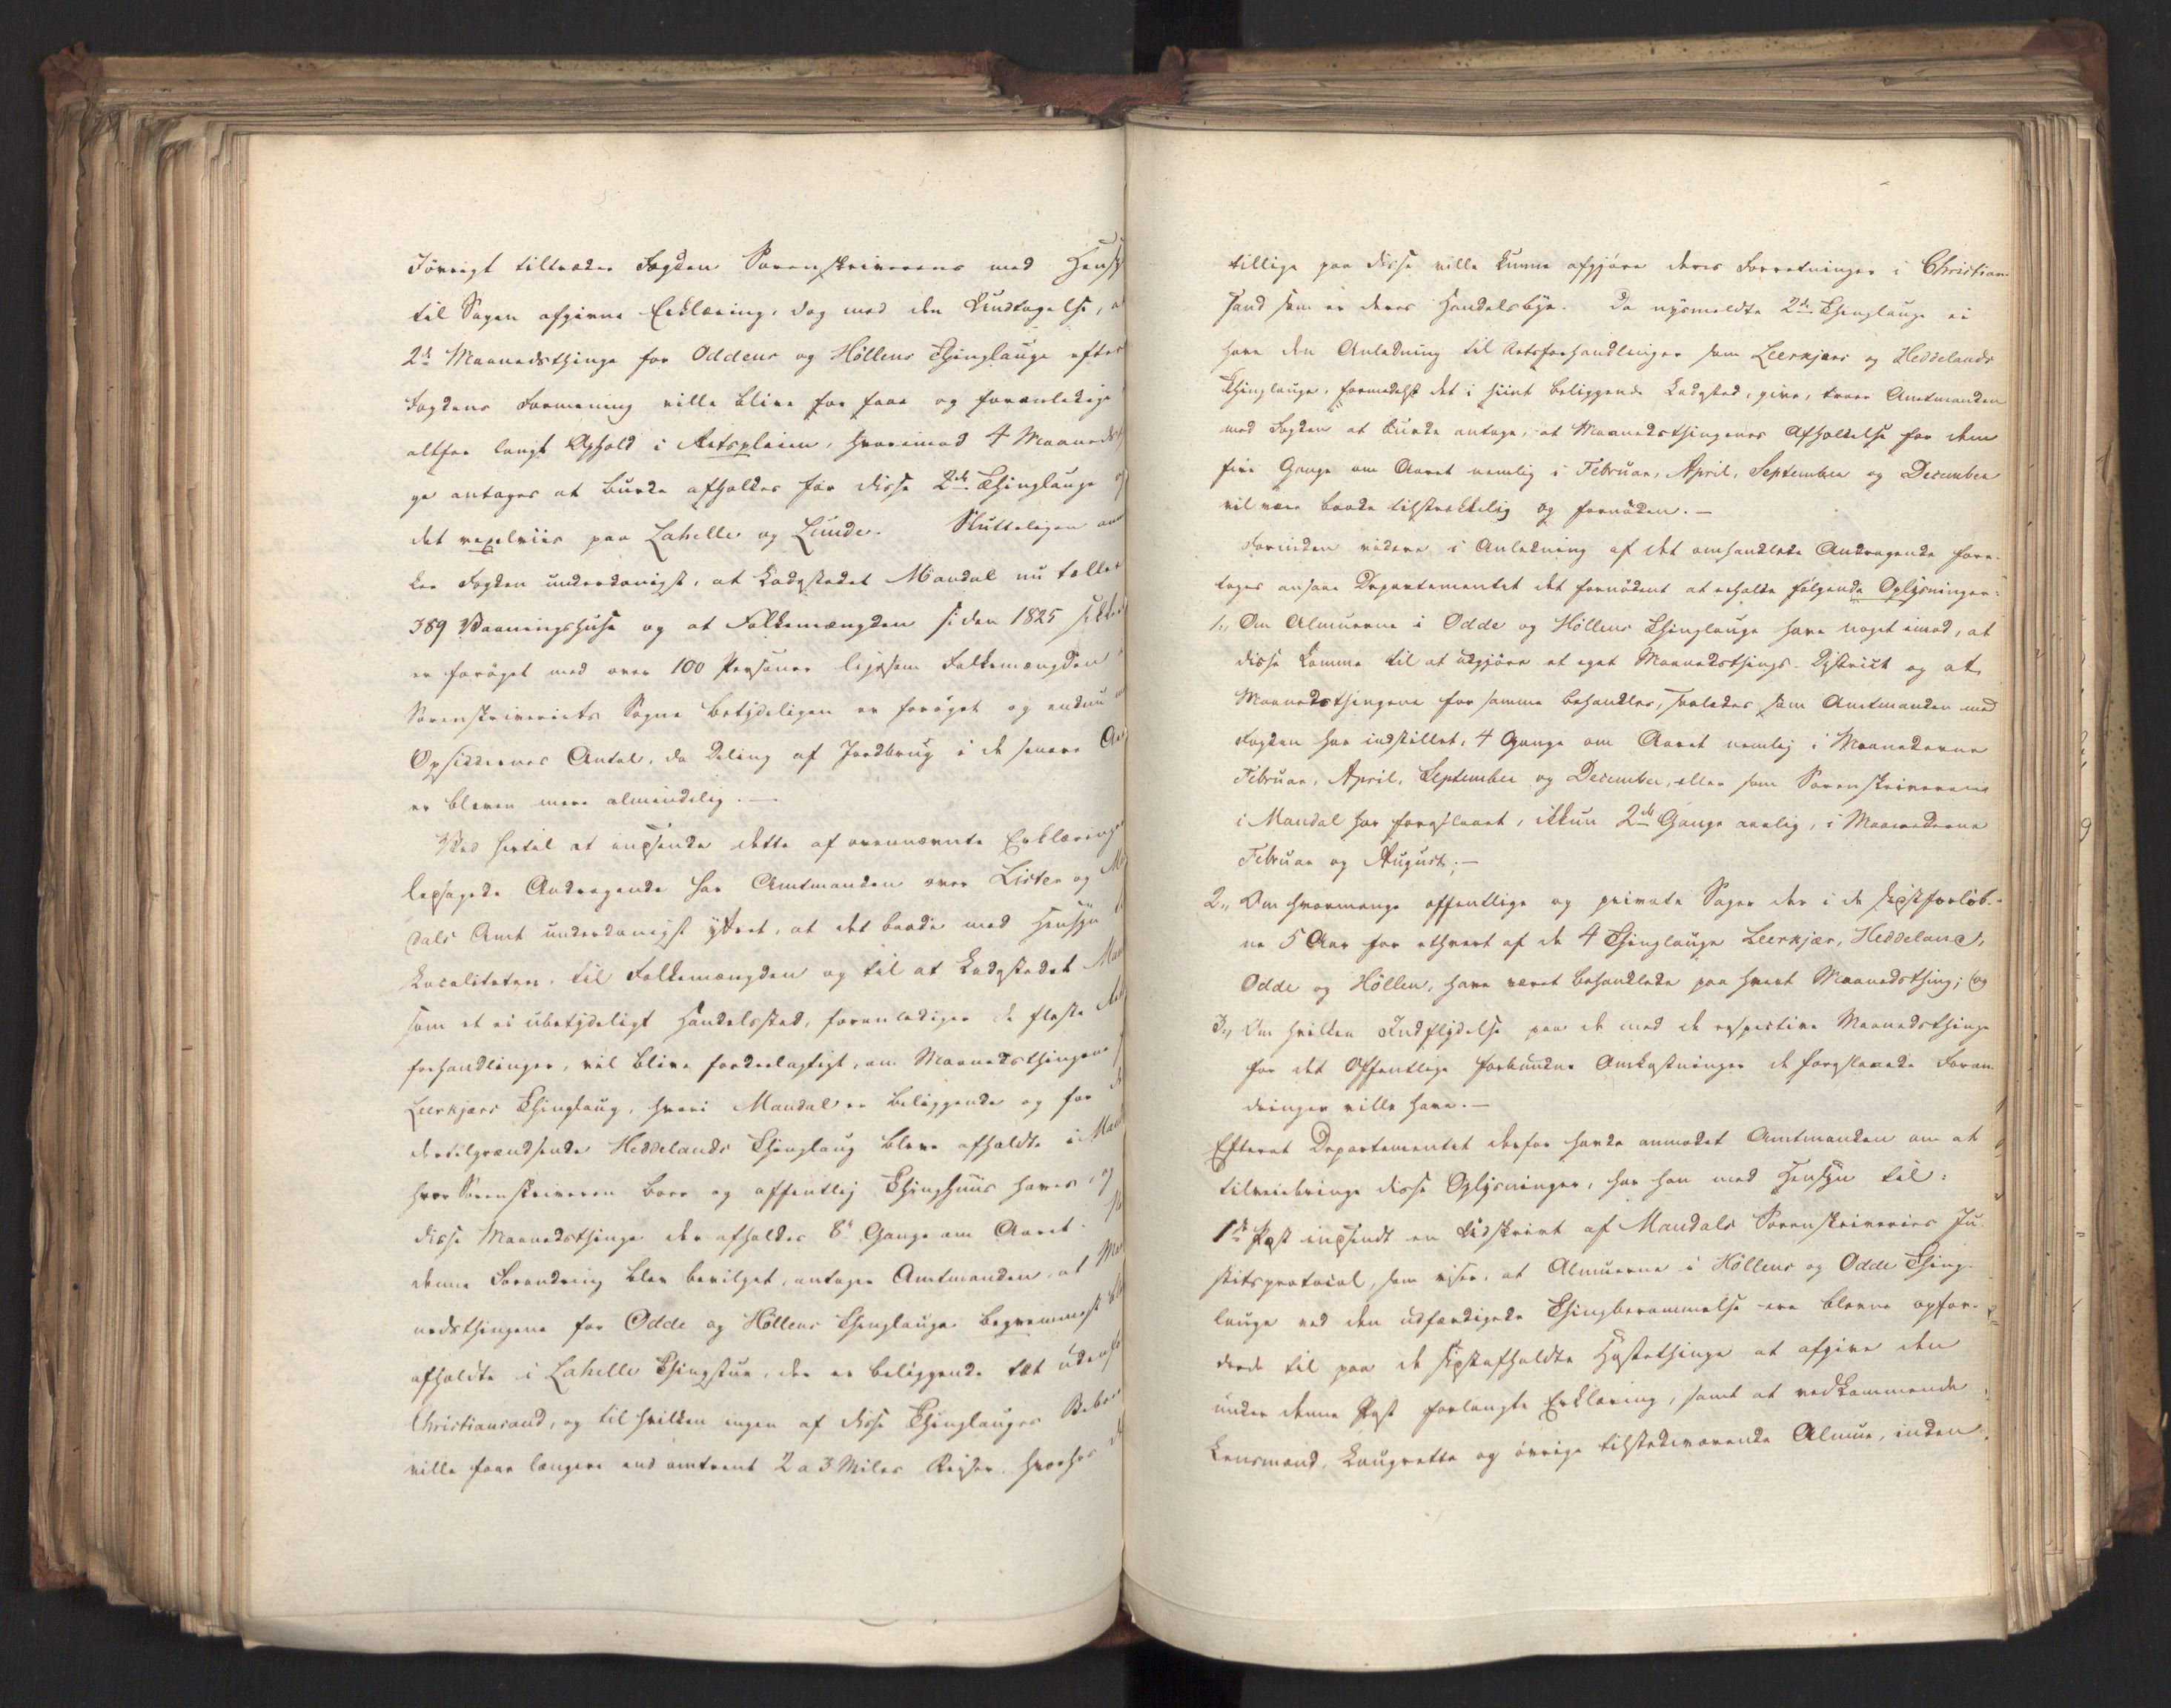 Iøvrigt tiltræder Fogden Sorenskriverens med Hensy
til Sagen afgivne Erklæring, dog med den Undtagelse, a
2de Maanedsthinge for Oddens og Höllens Thinglauge efter
Fogdens Formening ville blive for faae og foranledige
altfor langt Ophold i Retspleien, hvorimod 4 Maaneds
ge antages at burde afholdes for disse 2de Thinglauge
det vexelviis paa Lahelle og Lunde. Slutteligen
ker Fogden underdanigst, at Ladestedet Mandal nu tæller
389 Vaaningshuse og at Folkemængden siden 1825
er forøget med over 100 Personer ligesom Folkemængden
Sorenskriveriets Sogne betydeligen er forøget og endnu
Opsiddernes Antal, da Deling af Jordbrug i de senere
er bleven mere almindelig. —
Ved hertil at indsende dette af ovennævnte Erklæringer
ledsagede Andragende har Amtmanden over Lister og
dals Amt underdanigst yttret, at det baade med Hensyn
Localiteten, til Folkemængden og til at Ladestedet
som et ei ubetydeligt Handelssted, foranlediger de fleste
forhandlinger, vil blive fordeelagtigt, om Maanedsthingene
Leerkjærs Thinglaug, hvori Mandal er beliggende og for
dertilgrændsende Heddelands Thinglaug bleve afholdte i
hvor Sorenskriveren boer og offentlig Thinghuus haves, og
disse Maanedsthinge der afholdes 8te Gange om Aaret.
denne Forandring blev bevilget, antager Amtmanden, at
nedsthingene for Odde og Höllens Thinglauge beqvemmest
afholdte i Lahelle Thingstue, der er beliggende tæt
Christiansand, og til hvilken ingen af disse Thinglauges
ville faae længere end omtrent 2 a 3 Miles Reiser, hvorhos
tillige paa disse ville kunne afgjøre deres Forretninger i Christian
sand som er deres Handelsbye. Da nysmeldte 2de Thinglauge ei
have den Anledning til Retsforhandlinger som Leerkjærs og Heddelands
Thinglauge, formedelst det i hiint beliggende Ladested, give, troer Amtmanden
med Fogden at burde antage, at Maanedsthingenes Afholdelse for dem
fire Gange om Aaret nemlig i Februar, April, September og December
vil være baade tilstrækkelig og fornøden. —
Forinden videre i Anledning af det omhandlede Andragende fore-
toges ansaae Departementet det fornødent at erholde følgende Oplysninger:
1., Om Almuerne i Odde og Höllens Thinglauge have noget imod, at
disse komme til at udgjøre et eget Maanedsthings-District og at
Maanedsthingene for samme behandles, saaledes som Amtmanden med
Fogden har indstillet, 4 Gange om Aaret nemlig i Maanederne
Februar, April, September og December, eller som Sorenskriveren
i Mandal har foreslaaet, ikkun 2de Gange aarlig, i Maanederne
Februar og August;—
2., Om hvormange offentlige og private Sager der i de sidstforløb-
ne 5 Aar for ethvert af de 4 Thinglauge Leerkjær, Heddeland,
Odde og Höllen, have været behandlede paa hvert Maanedsthing; og
3., Om hvilken Indflydelse paa de med de respective Maanedsthinge
for det Offentlige forbundne Omkostninger de foreslaaede Foran
dringer ville have.—
Efterat Departementet derfor havde anmodet Amtmanden om at
tilveiebringe disse Oplysninger, har han med Hensyn til:
1ste Post indsendt en Udskrivt af Mandals Sorenskriveries Ju-
stitsprotocol, som viser, at Almuerne i Höllens og Odde Thing-
lauge ved den udfærdigede Thingberammelse ere blevne opfor-
drede til paa de sidstafholdte Høstethinge at afgive den
under denne Post forlangte Erklæring, samt at vedkommende
Lensmand, Laugrette og øvrige tilstedeværende Almue, inden